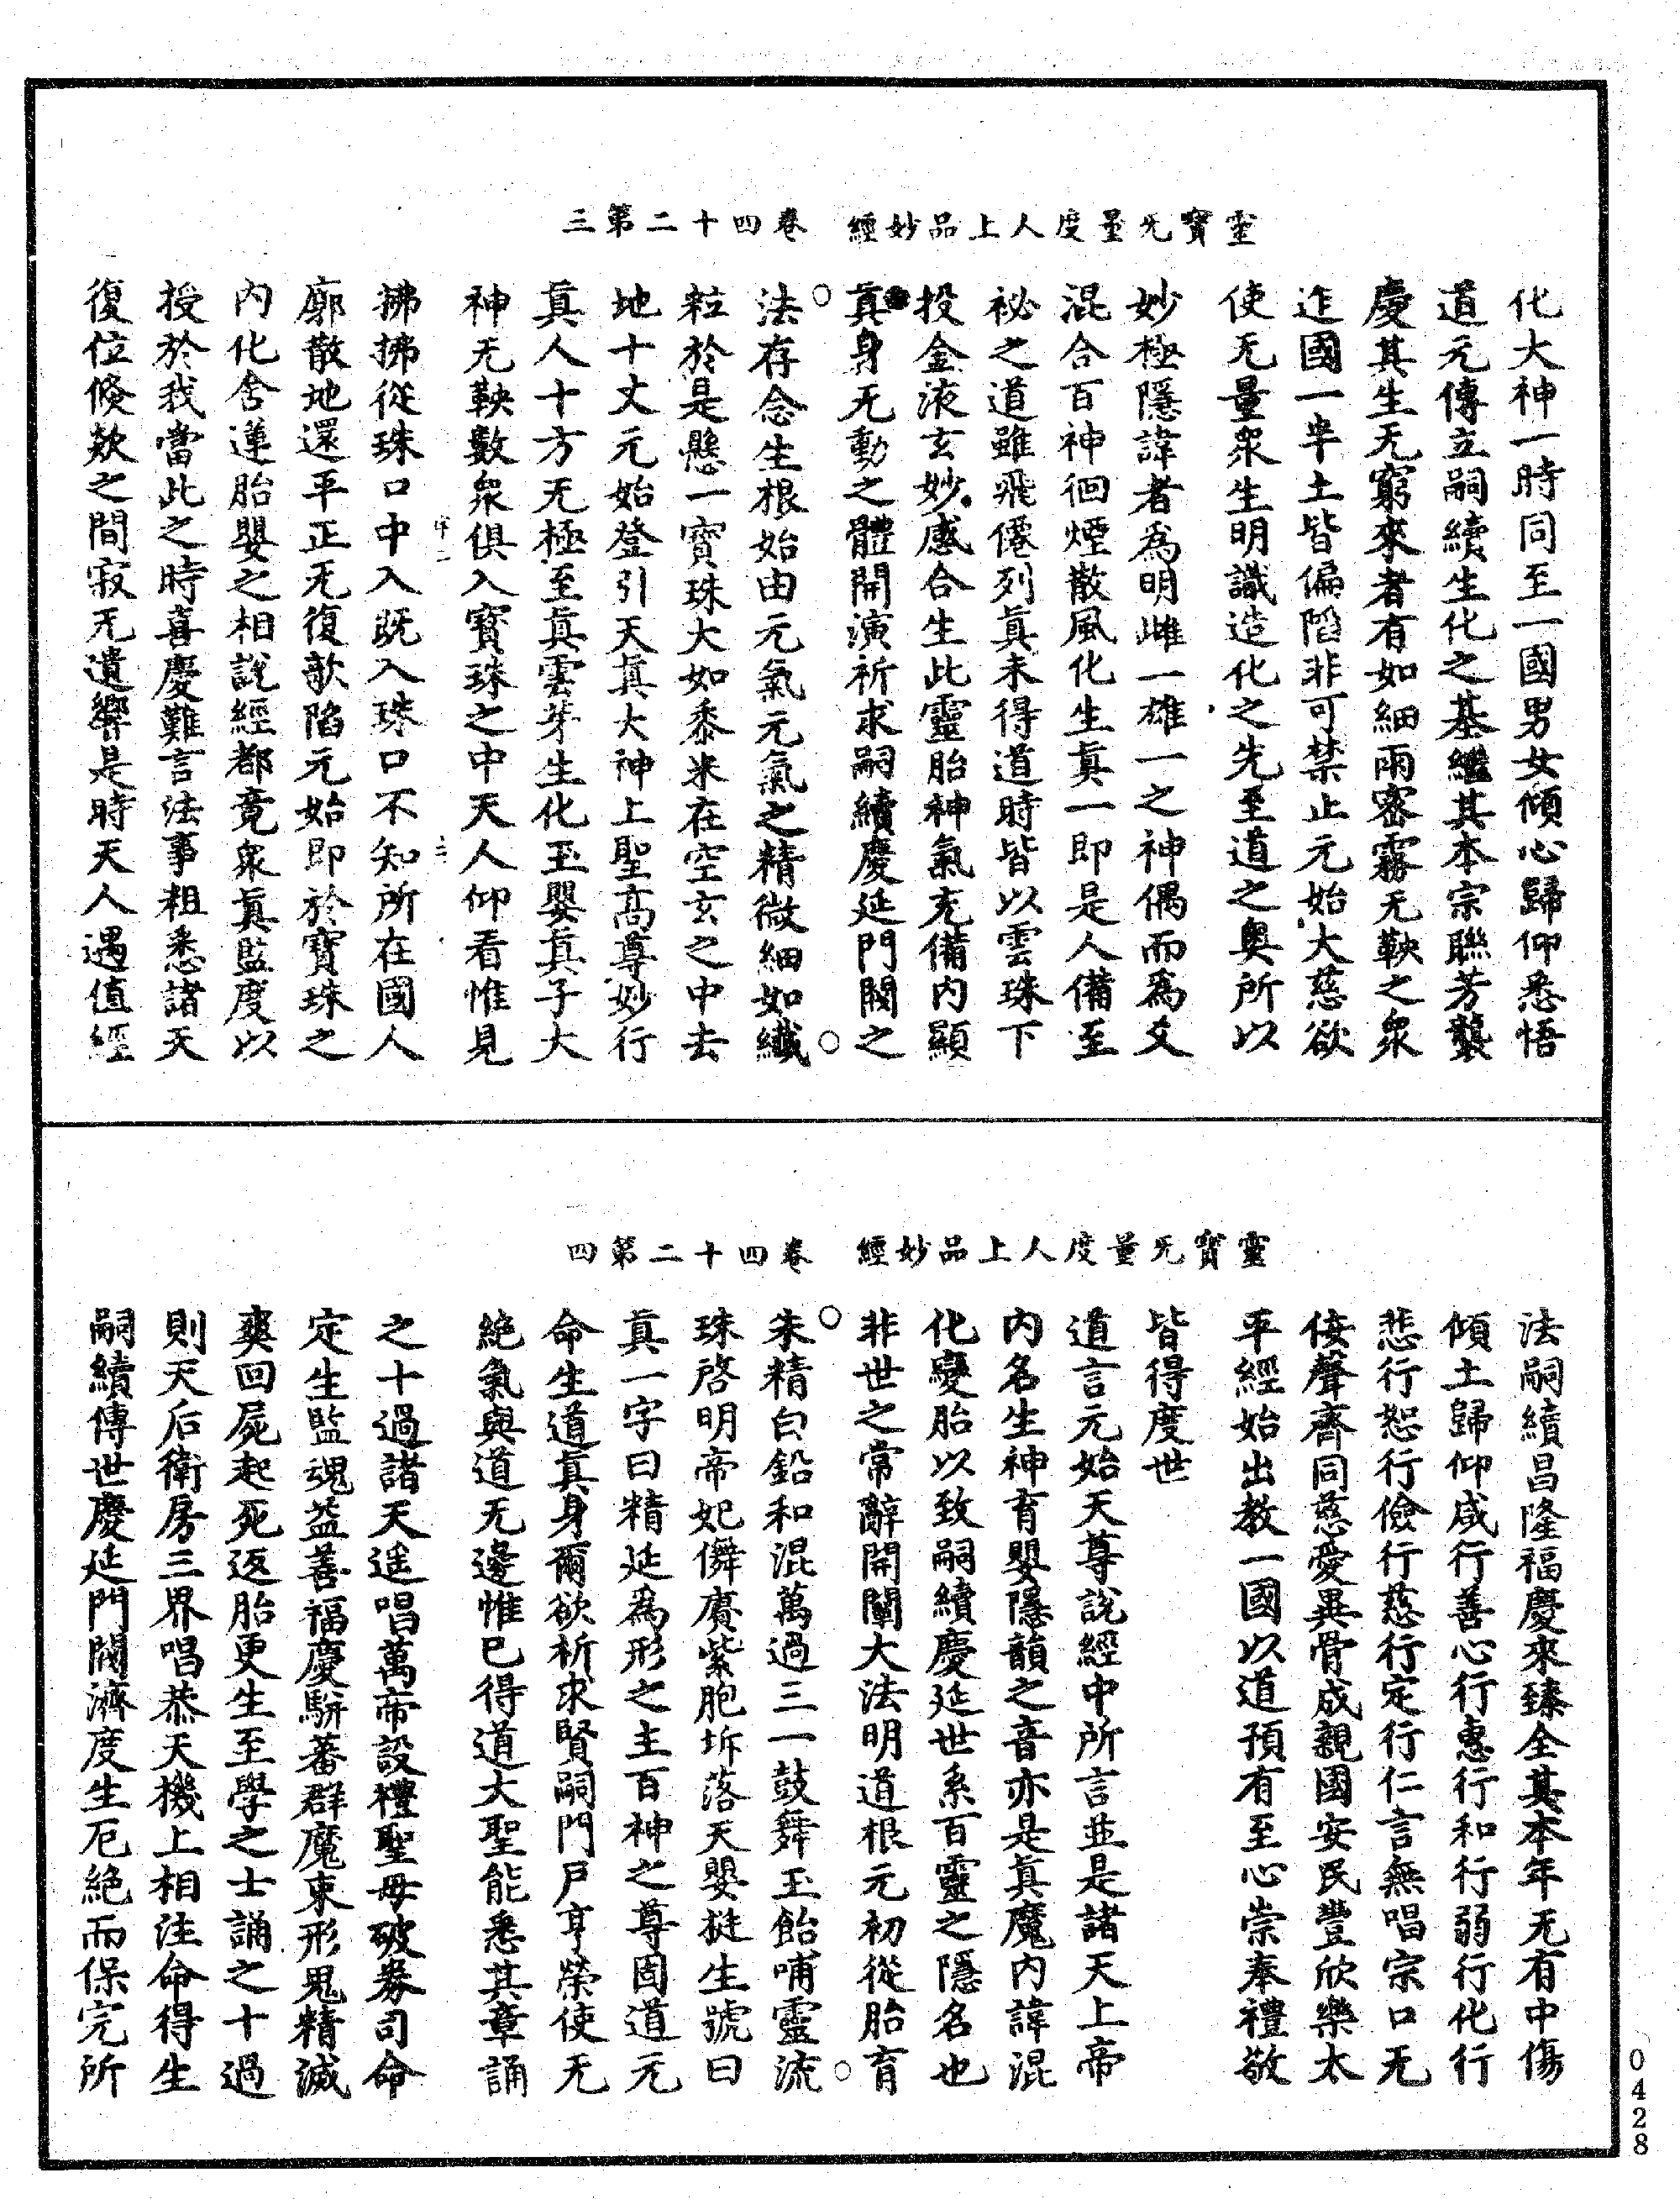 靈寶无量度人上品妙經 卷四十二第三
化大神一時同至一國男女傾心歸仰悉悟
道元傳立嗣續生化之基繼其本宗聯芳襲
慶其生无窮來者有如細雨密霧无鞅之衆
迮國一半土皆偏陷非可禁止元始大慈欲
使无量衆生明識造化之先至道之奧所以
妙極隱諱者為明雌一雄一之神偶而為爻
混合百神徊煙散風化生真一即是人備至
祕之道雖飛僊列真未得道時皆以雲珠下
投金液玄妙感合生此靈胎神氣充備內顯
真身无動之體開演祈求嗣續慶延門閥之
法存念生根始由元氣元氣之精微細如纖
粒於是懸一寶珠大如黍米在空玄之中去
地十丈元始登引天真大神上聖高尊妙行
真人十方无極至真雲芽生化玉嬰真子大
神无鞅數衆俱入寶珠之中天人仰看惟見
拂拂從珠口中入既入珠口不知所在國人
廓散地還平正无復欹陷元始即於寶珠之
內化舍蓮胎嬰之相說經都竟衆真監度以
授於我當此之時喜慶難言法事粗悉諸天
復位倏欻之間寂无遺響是時天人遇值經
靈寶无量度人上品妙經 卷四十二第四
法嗣續昌隆福慶來臻全其本年无有中傷
傾土歸仰咸行善心行惠行和行弱行化行
悲行恕行儉行慈行定行仁言無唱宗口无
佞聲齊同慈愛異骨成親國安民豐欣樂太
平經始出教一國以道預有至心崇奉禮敬
皆得度世
道言元始天尊說經中所言並是諸天上帝
內名生神育嬰隱韻之音亦是真魔內諱混
化變胎以致嗣續慶延世系百靈之隱名也
非世之常辭開闡大法明道根元初從胎育
朱精白鉛和混萬過三一鼓舞玉飴哺靈流
珠啓明帝妃儛膺紫胞坼落天嬰挻生號曰
真一字曰精延為形之主百神之尊固道元
命生道真身爾欲祈求賢嗣門戶亨榮使无
絶氣與道无邊惟已得道大聖能悉其章誦
之十過諸天遥唱萬帝設禮聖母破券司命
定生監魂益善福慶駢蕃群魔束形鬼精滅
爽回屍起死返胎更生至學之士誦之十過
則天后衛房三界唱恭天機上相注命得生
嗣續傳世慶延門閥濟度生厄絶而保完所
0428